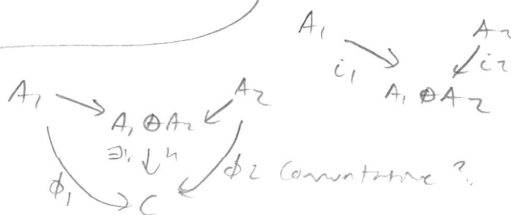 A₁ A₂
i₁ i₂
A₁ ⊕ A₂
A₁ A₂
A₁ ⊕ A₂
∃! h
ϕ₁ C ϕ2 Commutative ?